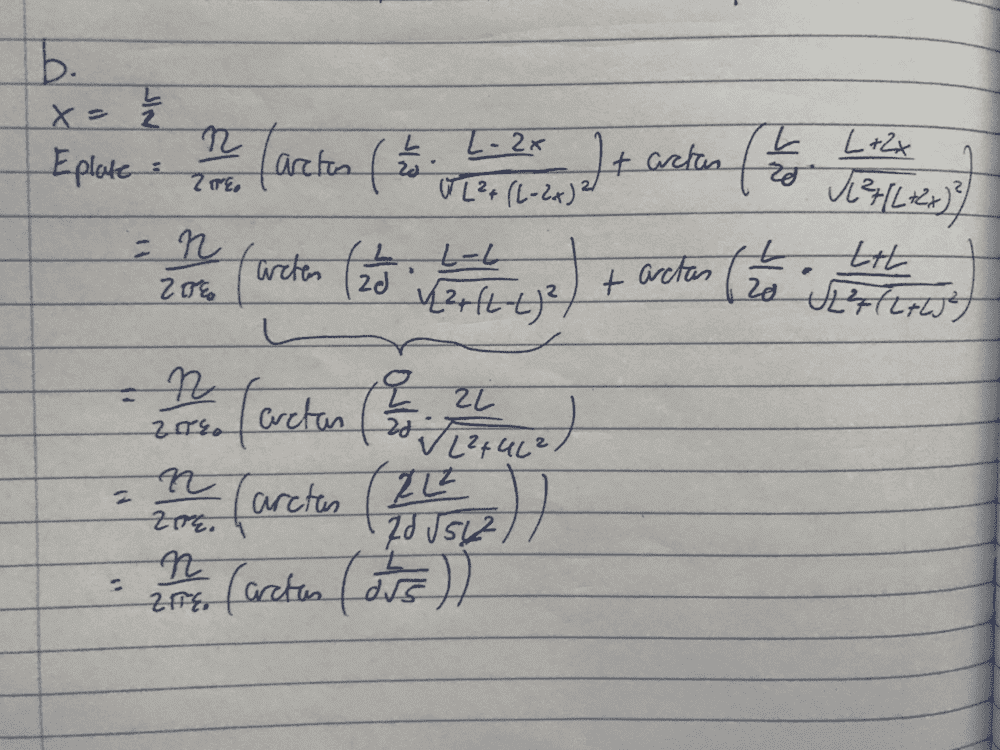 b.
x = L/2
Eplate = η/2πε₀ (arctan (L/2d · L-2x/√L²+(L-2x)²) + arctan (L/2d · L+2x/√L²+(L+2x)²)
= η/2πε₀ (arctan (L/2d · L-L/√L²+(L-L)²) + arctan (L/2d · L+L/√L²+(L+L)²)
0
= η/2πε₀ (arctan (L/2d · 2L/√L²+4L²)
= η/2πε₀ (arctan (2L²/2d√5L²))
= η/2πε₀ (arctan (L/d√5))